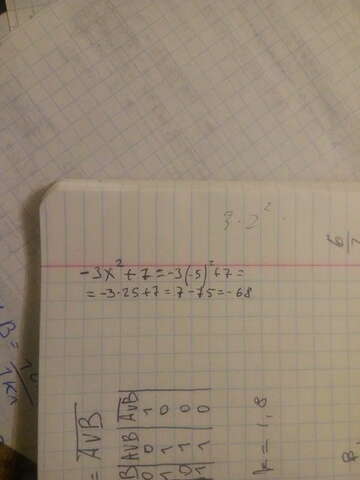 3·2².
-3x²+7=-3(-5)²+7=
=-3·25+7=7-75=-68
6
7
B=
1Кл
= A∨B
B A∨B A∨B
0 0 1
1 1 0
0 1 0
1 1 0
k=1,8